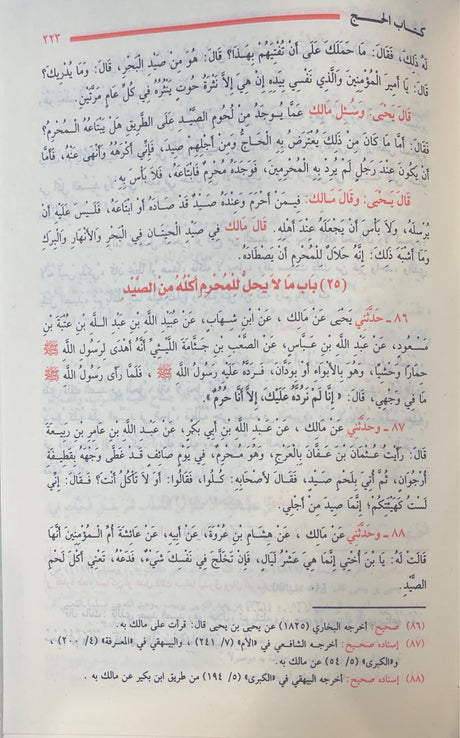 كتاب الحـج
٢٢٣
لَهُ ذلِكَ، فَقَالَ: مَا حَمَلَكَ عَلَى أَنْ تُفْتِيَهُمْ بِهذَا؟ قَالَ: هُوَ مِنْ صَيْدِ الْبَحْرِ، قَالَ: وَمَا يُدْرِيكَ؟
قَالَ: يَا أَمِيرَ الْمُؤْمِنِينَ وَالَّذِي نَفْسِي بِيَدِهِ إِنْ هِيَ إِلاَّ نَثْرَةُ حُوتٍ يَنْثُرُهُ فِي كُلِّ عَامٍ مَرَّتَيْنِ.
قَالَ يَحْيَى: وَسُئِلَ مَالِك عَمَّا يُوجَدُ مِنْ لُحُومِ الصَّيْدِ عَلَى الطَّرِيقِ هَلْ يَبْتَاعُهُ الْمُحْرِمُ؟
فَقَالَ: أَمَّا مَا كَانَ مِنْ ذلِكَ يُعْتَرَضُ بِهِ الْحَاجُّ وَمِنْ أَجْلِهِمْ صِيدَ، فَإِنِّي أَكْرَهُهُ وَأَنْهَى عَنْهُ، فَأَمَّا
أَنْ يَكُونَ عِنْدَ رَجُلٍ لَمْ يُرِدْ بِهِ الْمُحْرِمِينَ، فَوَجَدَهُ مُحْرِمٌ فَابْتَاعَهُ، فَلاَ بَأْسَ بِهِ.
قَالَ يَحْيَى: وَقَالَ مَالِك: فِيـمَنْ أَحْرَمَ وَعِنْدَهُ صَيْدٌ قَدْ صَادَهُ أَوِ ابْتَاعَهُ، فَلَيْسَ عَلَيْهِ أَنْ
يُرْسِلَهُ، وَلاَ بَأْسَ أَنْ يَجْعَلَهُ عِنْدَ أَهْلِهِ. قَالَ مَالِك فِي صَيْدِ الْحِيتَانِ فِي الْبَحْرِ وَالأَنْهَارِ وَالْبِرَكِ
وَمَا أَشْبَهَ ذلِكَ: إِنَّهُ حَلاَلٌ لِلْمُحْرِمِ أَنْ يَصْطَادَهُ.
(٢٥) بَاب مَا لاَ يَحِلُّ لِلْمُحْرِمِ أَكْلُهُ مِنَ الصَّيْدِ
٨٦ ـ حَدَّثَنِي يَحْيَى عَنْ مَالِك، عَنِ ابْنِ شِهَابٍ، عَنْ عُبَيْدِ اللَّهِ بْنِ عَبْدِ اللـه بْنِ عُتْبَةَ بْنِ
مَسْعُودٍ، عَنْ عَبْدِ اللَّهِ بْنِ عَبَّاسٍ، عَنِ الصَّعْبِ بْنِ جَثَّامَةَ اللَّيْثِيِّ أَنَّهُ أَهْدَى لِرَسُولِ اللَّهِ ﷺ
حِمَارًا وَحْشِيًّا، وَهُوَ بِالأَبْوَاءِ أَوْ بِوَدَّانَ، فَرَدَّهُ عَلَيْهِ رَسُولُ اللَّهِ ﷺ ، فَلَمَّا رَأَى رَسُولُ اللَّهِ ﷺ
مَا فِي وَجْهِي، قَالَ: « إِنَّا لَمْ نَرُدَّهُ عَلَيْكَ، إِلاَّ أَنَّا حُرُمٌ ».
٨٧ ـ وَحَدَّثَنِي عَنْ مَالِك ، عَنْ عَبْدِ اللَّهِ بْنِ أَبِي بَكْرٍ، عَنْ عَبْدِ اللَّهِ بْنِ عَامِرِ بْنِ رَبِيعَةَ
قَالَ: رَأَيْتُ عُثْمَانَ بْنَ عَفَّانَ بِالْعَرْجِ، وَهُوَ مُحْرِمٌ، فِي يَوْمٍ صَائِفٍ قَدْ غَطَّى وَجْهَهُ بِقَطِيفَةِ
أُرْجُوَانٍ، ثُمَّ أُتِيَ بِلَحْمِ صَيْدٍ، فَقَالَ لأَصْحَابِهِ: كُلُوا، فَقَالُوا: أَوَ لاَ تَأْكُلُ أَنْتَ؟ فَقَالَ: إِنِّي
لَسْتُ كَهَيْئَتِكُمْ؛ إِنَّمَا صِيدَ مِنْ أَجْلِي.
٨٨ ـ وَحَدَّثَنِي عَنْ مَالِك ، عَنْ هِشَامِ بْنِ عُرْوَةَ، عَنْ أَبِيهِ، عَنْ عَائِشَةَ أُمِّ الْمُؤْمِنِينَ أَنَّهَا
قَالَتْ لَهُ: يَا بْنَ أُخْتِي إِنَّمَا هِيَ عَشْرُ لَيَالٍ، فَإِنْ تَخَلَّجَ فِي نَفْسِكَ شَيْءٌ، فَدَعْهُ، تَعْنِي أَكْلَ لَحْمِ
الصَّيْدِ.
(٨٦) صحيح: أخرجه البخاري (١٨٢٥) عن يحيى بن يحيى قال: قرأت على مالك به.
(٨٧) إسناده صحيح: أخرجـه الشافعي في «الأم» (٧/ ٢٤١)، والبيـهقي في «المعرفة» (٤/ ٢٠٠) ،
و«الكبرى» (٥/ ٥٤) عن مالك به.
(٨٨) إسناده صحيح: أخرجه البيهقي في «الكبرى» (٥/ ١٩٤) من طريق ابن بكير عن مالك به .